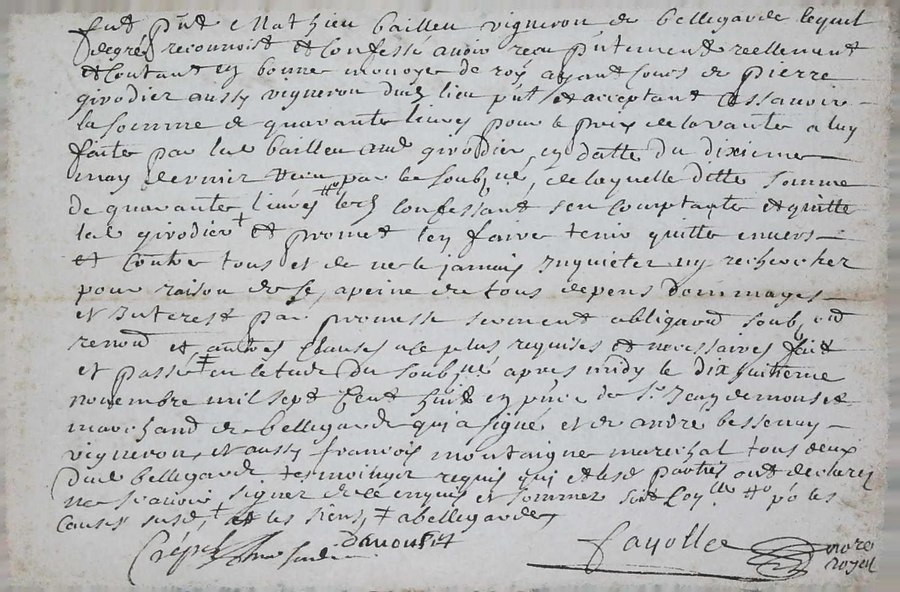 fut pñt Mathieu bailleu vigneron de bellegarde lequel
degre reconnoist et Confesse avoir receu pñtement reellement
et Contant en bonne monoye de roy ayant Cours de pierre
girodier aussy vigneron dud lieu pñt et acceptant assavoir
la somme de quarante livres pour le prix de la vante a luy
faite par led bailleu aud girodier en datte du dixieme
may dernier receu par le soubs.né, de laquelle ditte somme
de quarante livres Confessant sen Comptante et quitte
led girodier + et promet len faire tenir quitte envers
et Contre tous et de ne le jamais Inquieter ny rechercher
pour raison de ce, a peine de tous depens dommages
et Interest par promesse serment obligaõn soub,
renon et autres Clauses a ce plus requises et necessaires fait
et passé ǂ en letude du soub.né apres midy le dix huitieme
novembre mil sept Cent huit en p.nce de s.r Jean demonset
marchand de bellegarde qui a signé et de andre bessenay
vigneron, et aussy francois montaigne marechal tous deux
dud bellegarde tesmoings requis qui et lesd parties ont declaré
ne scavoir signer de ce enquis et sommez
Causes susd, + et les siens, ǂ a bellegarde,
Demonset
Fayolle nore
royal